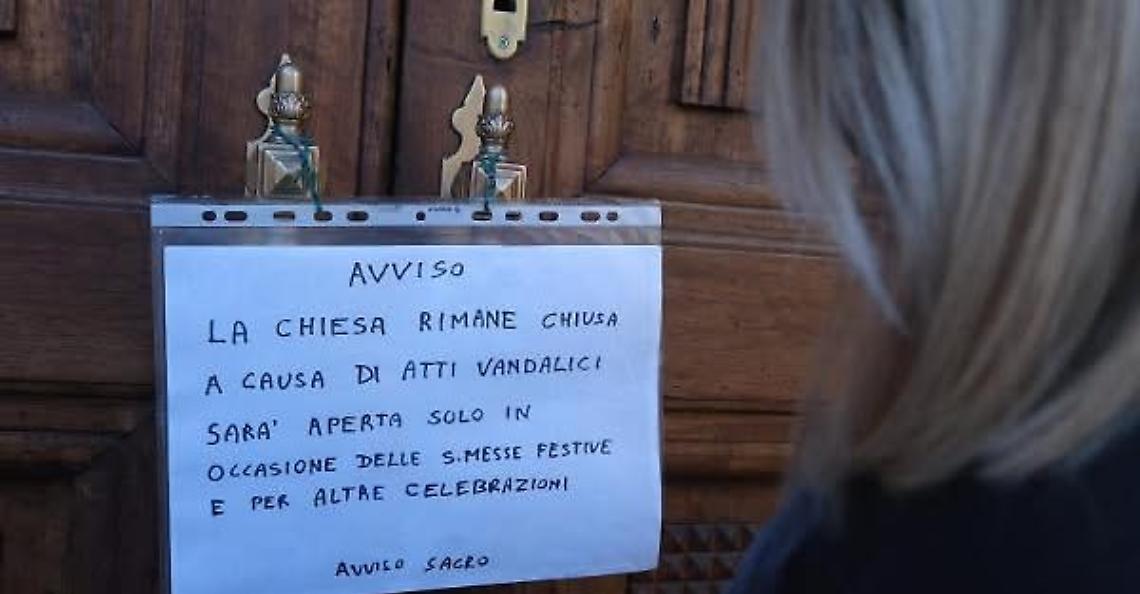 AVVISO
LA CHIESA RIMANE CHIUSA
A CAUSA DI ATTI VANDALICI
SARA' APERTA SOLO IN
OCCASIONE DELLE S.MESSE FESTIVE
E PER ALTRE CELEBRAZIONI
AVVISO SACRO